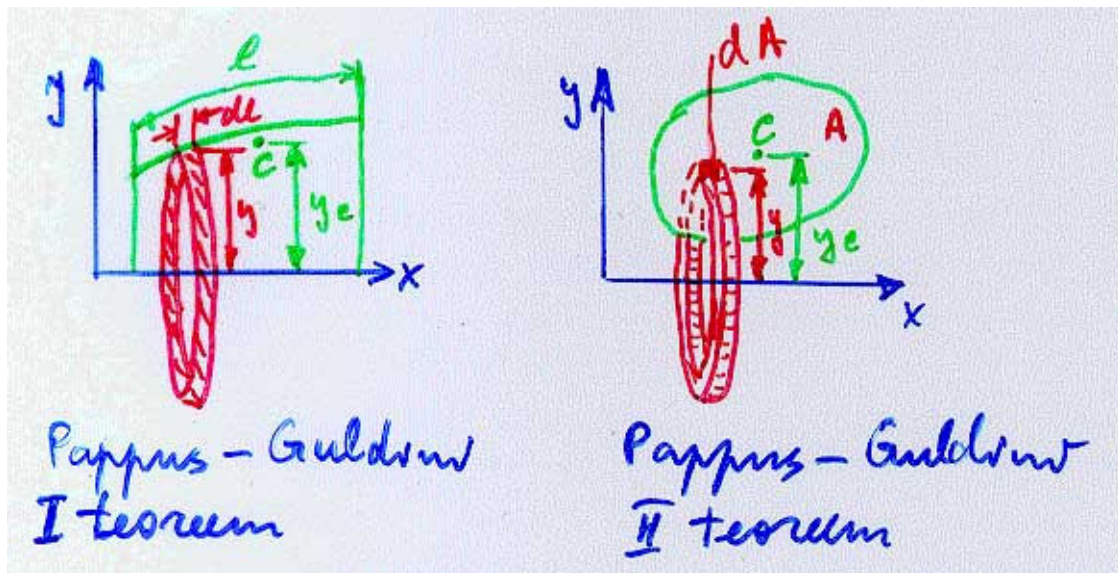 l
y
dl
C
y
yc
x
Pappus – Guldini
I teoreem
dA
y
C
A
y
yc
x
Pappus – Guldini
II teoreem